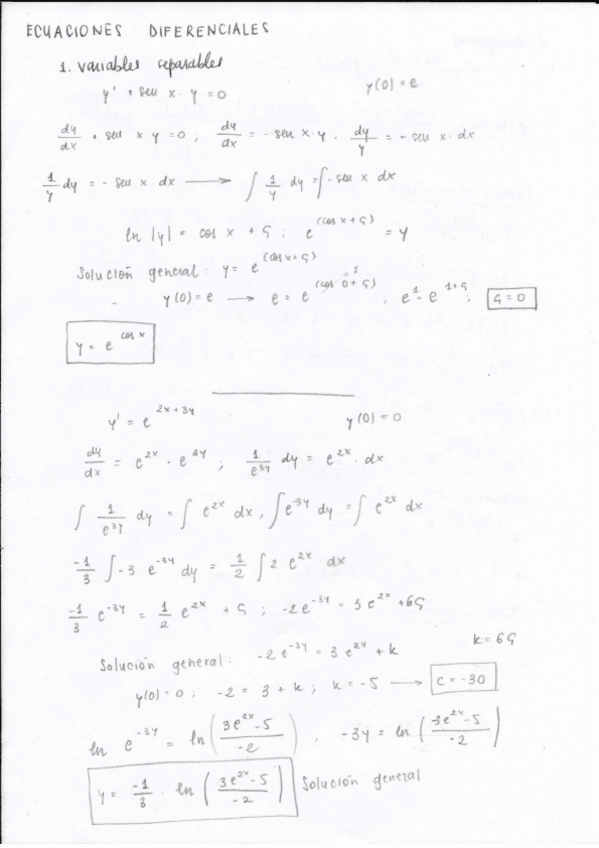 ECUACIONES DIFERENCIALES
1. Variables separables
y' + sen x · y = 0    y(0) = e
dy/dx + sen x y = 0 ; dy/dx = - sen x · y . dy/y = - sen x · dx
1/y dy = - sen x dx ⟶ ∫ 1/y dy = ∫ - sen x dx
ln |y| = cos x + C₁ ; e^(cos x + C₁) = y
Solución general: y = e^(cos x + C₁)
y(0) = e ⟶ e = e^(cos 0 + C₁) 1 ; e^1 = e^(1+C₁) ; C₁ = 0
y = e^(cos x)
y' = e^(2x+3y)    y(0) = 0
dy/dx = e^(2x) · e^(3y) ; 1/e^(3y) dy = e^(2x) · dx
∫ 1/e^(3y) dy = ∫ e^(2x) dx ; ∫ e^(-3y) dy = ∫ e^(2x) dx
-1/3 ∫ -3 e^(-3y) dy = 1/2 ∫ 2 · e^(2x) dx
-1/3 e^(-3y) = 1/2 e^(2x) + C₁ ; -2e^(-3y) = 3e^(2x) + 6C₁
k = 6C₁
Solución general: -2e^(-3y) = 3e^(2x) + k
y(0) = 0 ; -2 = 3 + k ; k = -5 ⟶ C = -30
ln e^(-3y) = ln ( (3e^(2x) - 5)/-2 ) , -3y = ln ( (3e^(2x) - 5)/-2 )
y = -1/3 · ln ( (3e^(2x) - 5)/-2 ) Solución general